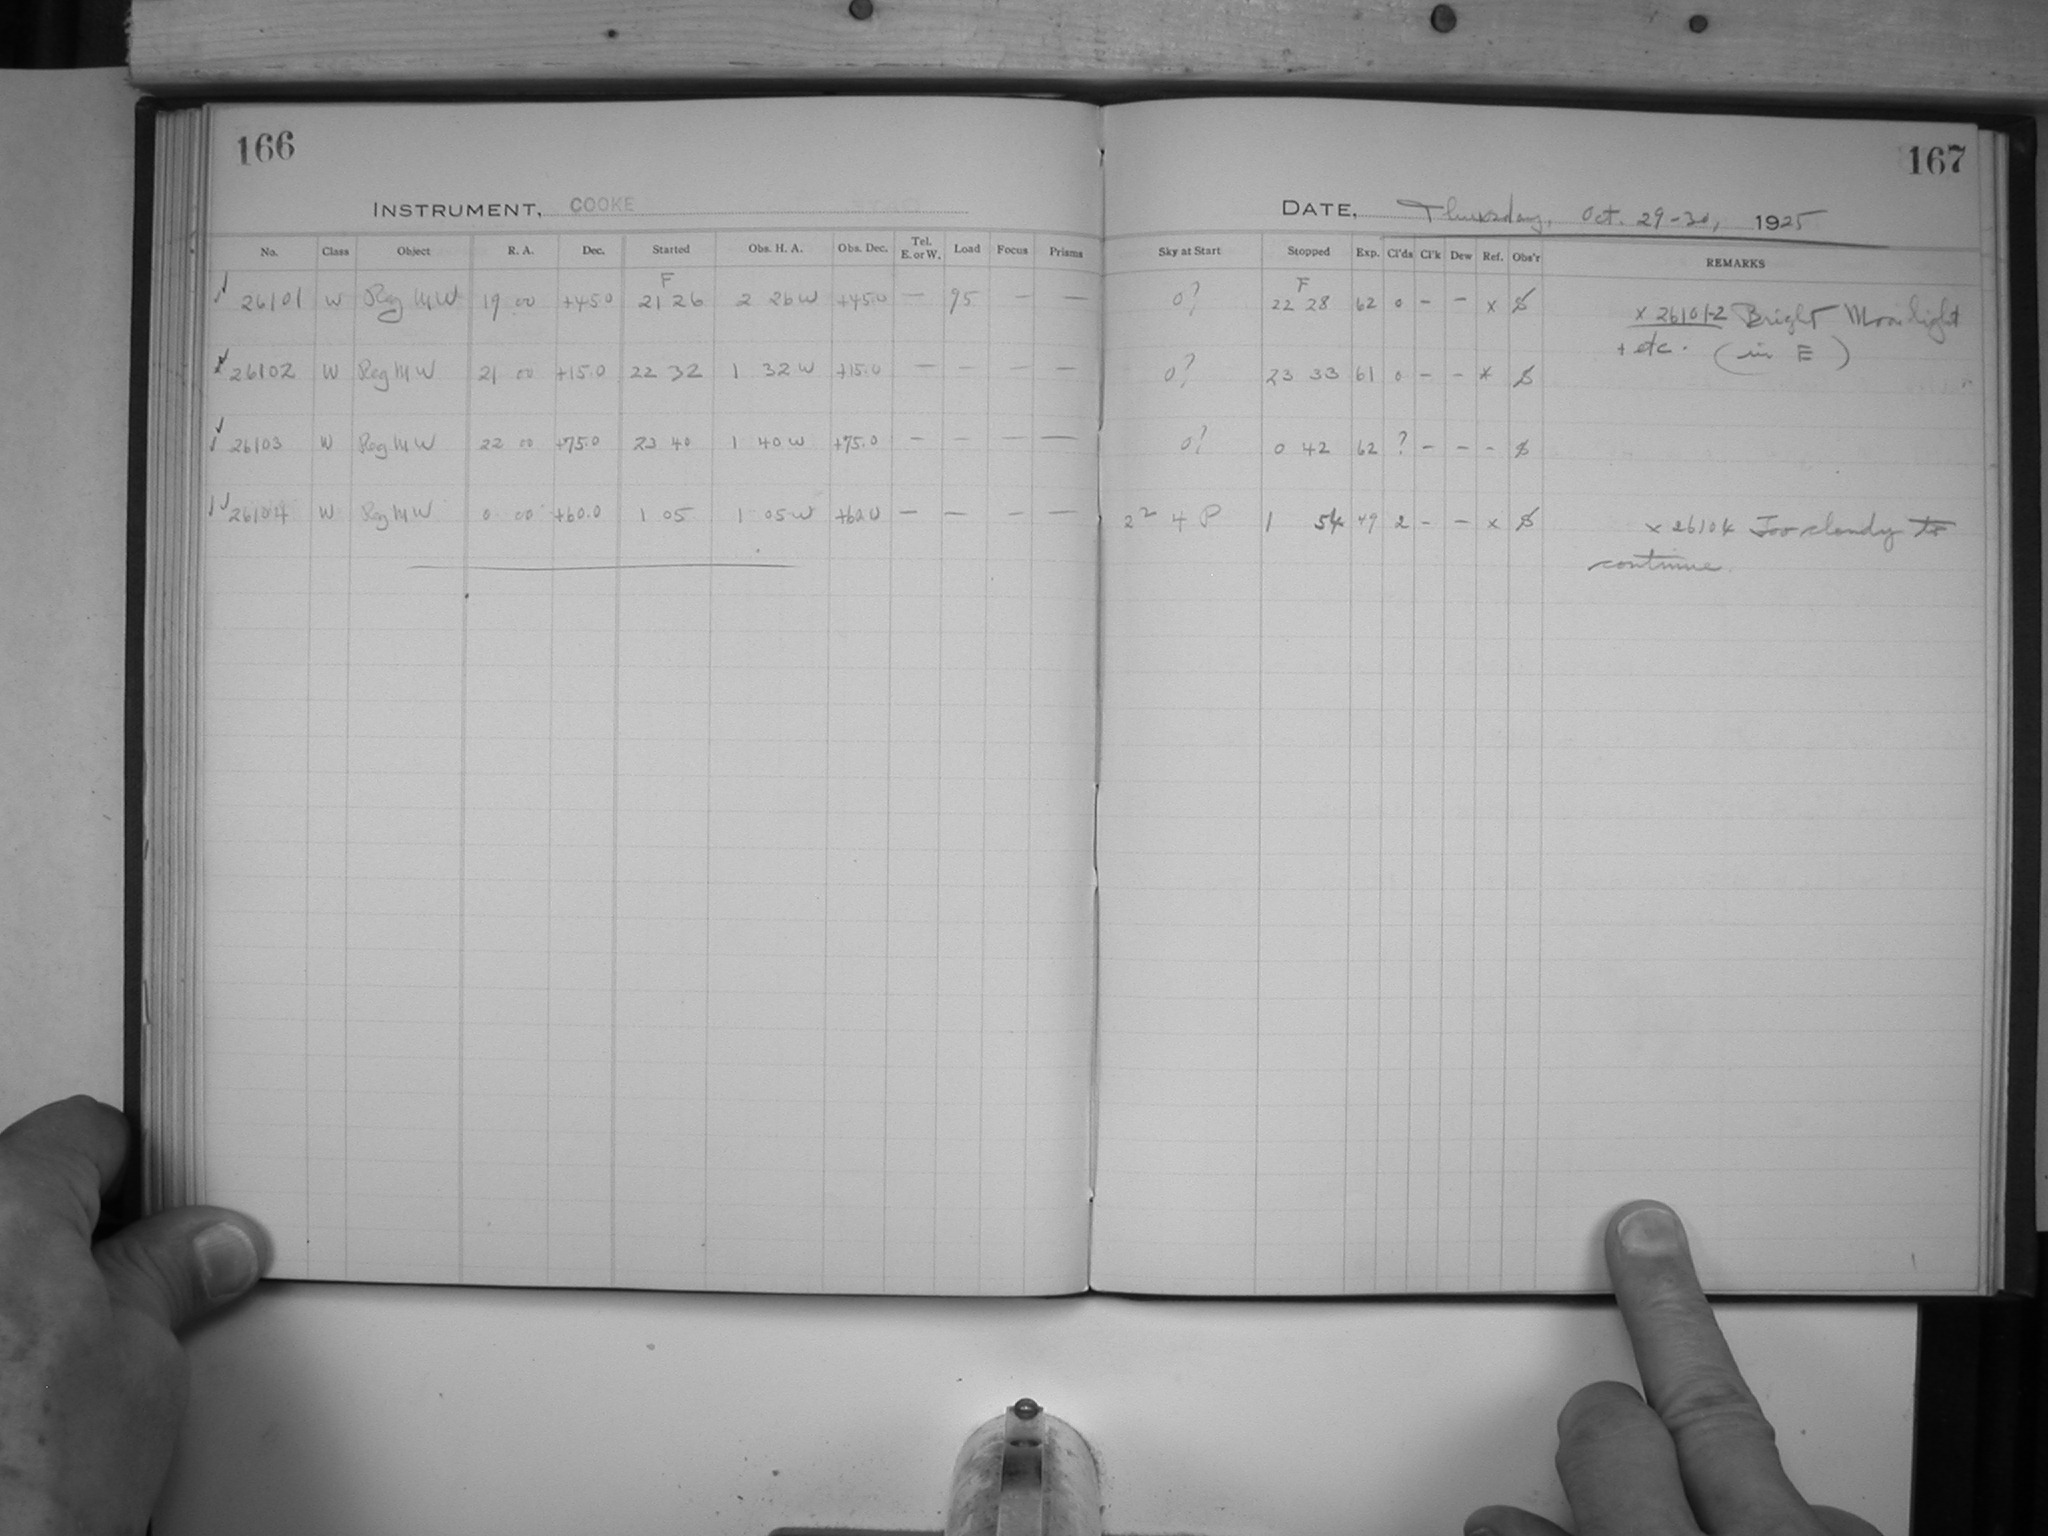 166
INSTRUMENT, COOKE
No. Class Object R. A. Dec. Started Obs. H. A. Obs. Dec. Tel. E. or W. Load Focus Prisms
F
26101 W Reg M W 19 00 +45.0 21 26 2 26 W +45.0 — 95 — —
26102 W Reg M W 21 00 +15.0 22 32 1 32 W +15.0 — — — —
26103 W Reg M W 22 00 +75.0 23 40 1 40 W +75.0 — — — —
26104 W Reg M W 0 00 +60.0 1 05 1 05 W +60.0 — — — —
167
DATE, Thursday, Oct. 29-30, 1925
Sky at Start Stopped Exp. Cl'ds Cl'k Dew Ref. Obs'r REMARKS
F
0? 22 28 62 0 - - x x 26101-2 Bright Moonlight
+ etc. (in E)
0? 23 33 61 0 - - x
0? 0 42 62 ? - - -
2² 4 P 1 54 49 2 - - x x 26104 Too cloudy to
continue.